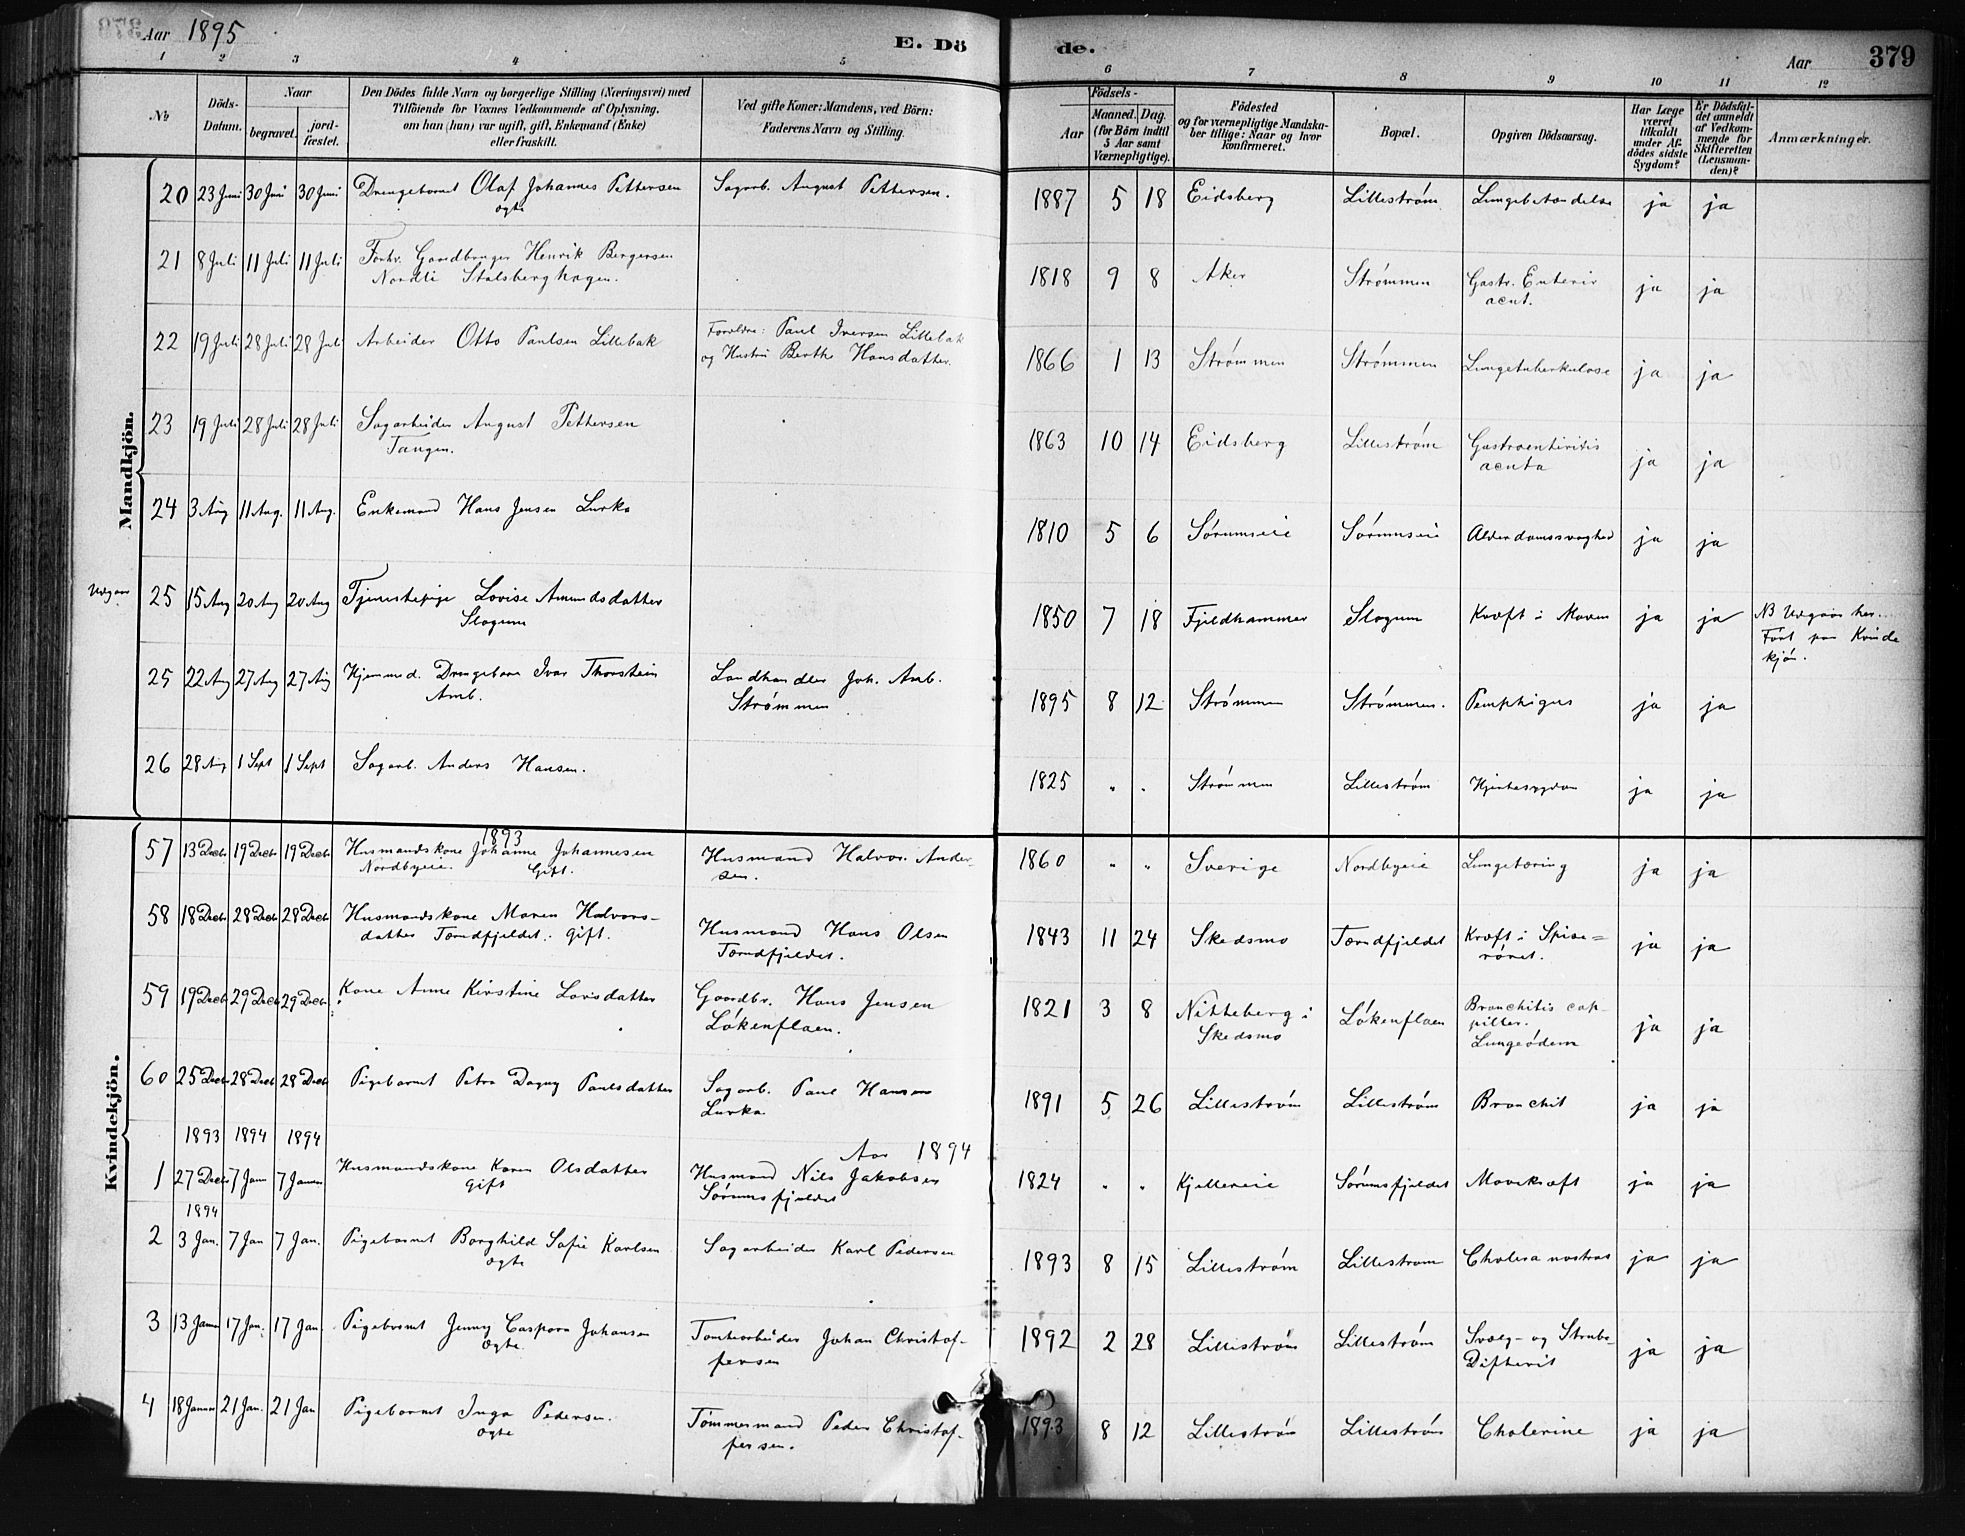 Aar 1895
E. Döde.
Aar 379
1 2 3 4 5 6 7 8 9 10 11 12
No
Döds-Datum.
Naar
begravet.
jord-fæstet.
Den Dödes fulde Navn og borgerlige Stilling (Næringsvei) med
Tilföiende for Voxnes Vedkommende af Oplysning.
om han (hun) var ugift, gift, Enkemand (Enke)
eller fraskilt.
Ved gifte Koner: Mandens, ved Börn:
Faderens Navn og Stilling.
Födsels-
Aar
Maaned. Dag.
(for Börn indtil
5 Aar samt
Værnepligtige).
Födested
og for værnepligtige Mandska-
ber tillige: Naar og hvor
konfirmeret.
Bopæl.
Opgiven Dödsaarsag.
Har Læge
været
tilkaldt
under Af-
dödes sidste
Sygdom?
Er Dödsfal-
det anmeldt
af Vedkom-
mende for
Skifteretten
(Lensman-
den)?
Anmærkninger.
Mandkjön.
20 23 Juni 30 Juni 30 Juni Drengebarnet Olaf Johannes Pettersen Sagarb. August Pettersen. 1887 5 18 Eidsberg Lilleström Lungebetændelse ja ja
ægte
21 8 Juli 11 Juli 11 Juli Forhv. Gaardbruger Henrik Bergersen 1818 9 8 Aker Strømmen Gastr. Enterir ja ja
Nordli Stalsberghagen. acut.
22 19 Juli 28 Juli 28 Juli Arbeider Otto Paulsen Lillebak Forældre: Paul Iversen Lillebak 1866 1 13 Strømmen Strømmen Lungetuberkulose ja ja
og Hustru Berthe Hansdatter.
23 19 Juli 28 Juli 28 Juli Sagarbeider August Pettersen 1863 10 14 Eidsberg Lilleström Gastroenteritis ja ja
Tangen. acuta
24 3 Aug 11 Aug. 11 Aug. Enkemand Hans Jensen Lurka 1810 5 6 Sørumseie Sørumseie Alderdomssvaghed ja ja
Udgaar 25 15 Aug 20 Aug 20 Aug Tjenestepige Lovise Amundsdatter 1850 7 18 Fjeldhammer Slogum Kræft i Maven ja ja NB Udgaar her.
Slogum Ført paa Kvinde
kjøn.
25 22 Aug 27 Aug 27 Aug Hjemmed. Drengebarn Ivar Thorstein Landhandler Joh. Amb. 1895 8 12 Strømmen Strømmen. Pemphigus ja ja
Amb. Strømmen
26 28 Aug 1 Sept 1 Sept Sagarb. Anders Hansen. 1825 " " Strømmen Lilleström Hjertesygdom ja ja
Kvindekjön.
1893
57 13 Decb. 19 Decb. 19 Decb. Husmandskone Johanne Johannesen Husmand Halvor Ander- 1860 " " Sverige Nordbyeie Lungetæring ja ja
Nordbyeie. Gift. sen.
58 18 Decb. 28 Decb. 28 Decb. Husmandskone Maren Halvors- Husmand Hans Olsen 1843 11 24 Skedsmo Tærudfjeldet Kræft i Spise= ja ja
datter Tærudfjeldet. gift. Tærudfjeldet. røret.
59 19 Decb. 29 Decb. 29 Decb. Kone Anne Kirstine Larsdatter Gaardbr. Hans Jensen 1821 3 8 Nitteberg i Løkenflaen Bronchitis cap- ja ja
Løkenflaen. Skedsmo piller.
Lungeødem
60 25 Decb. 28 Decb. 28 Decb. Pigebarnet Petra Dagny Paulsdatter Sagarb. Paul Hansen 1891 5 26 Lilleström Lilleström Bronchit ja ja
Lurka.
1893 1894 1894 Aar 1894
1 27 Decb. 7 Janu 7 Januar Husmandskone Karen Olsdatter Husmand Nils Jakobsen 1824 " " Kjellereie Sørumsfjeldet Mavekræft ja ja
Gift Sørumsfjeldet
1894
2 3 Jan. 7 Jan 7 Jan. Pigebarnet Borghild Sofie Karlsen Sagarbeider Karl Pedersen 1893 8 15 Lilleström Lillestrøm Cholera nostras ja ja
ægte
3 13 Janu 17 Jan. 17 Jan Pigebarnet Jenny Caspara Johansen Tomtearbeider Johan Christof- 1892 2 28 Lilleström Lilleström Svælg- og Strube- ja ja
ægte. fersen Difterit
4 18 Januar 21 Jan. 21 Jan Pigebarnet Inga Pedersen. Tømmermand Peder Christof- 1893 8 12 Lilleström Lilleström Cholerine ja ja
ægte fersen.